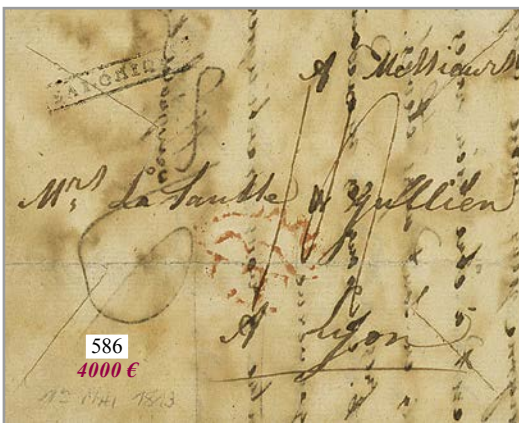 SANGHIR
A Messieurs
Mrs La Saulle & Gullien
A Lyon
586
4000 €
12 MAI 1813